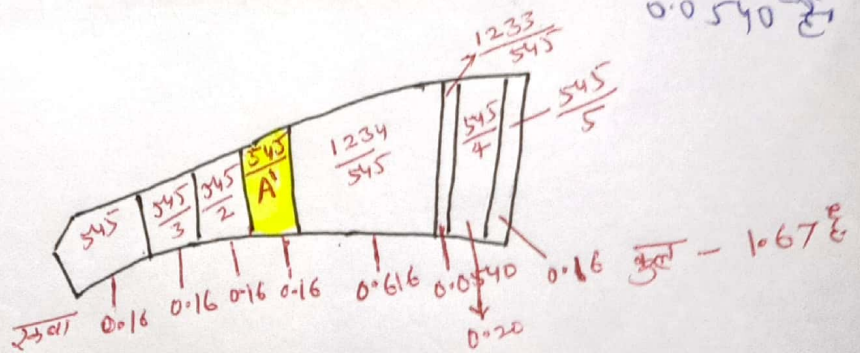 0.0540 हे
1233/545
545
545/3
545/2
545/A'
1234/545
545/4
545/5
रकवा 0.16 0.16 0.16 0.16 0.616 0.0540 0.16 कुल - 1.67 हे
0.20